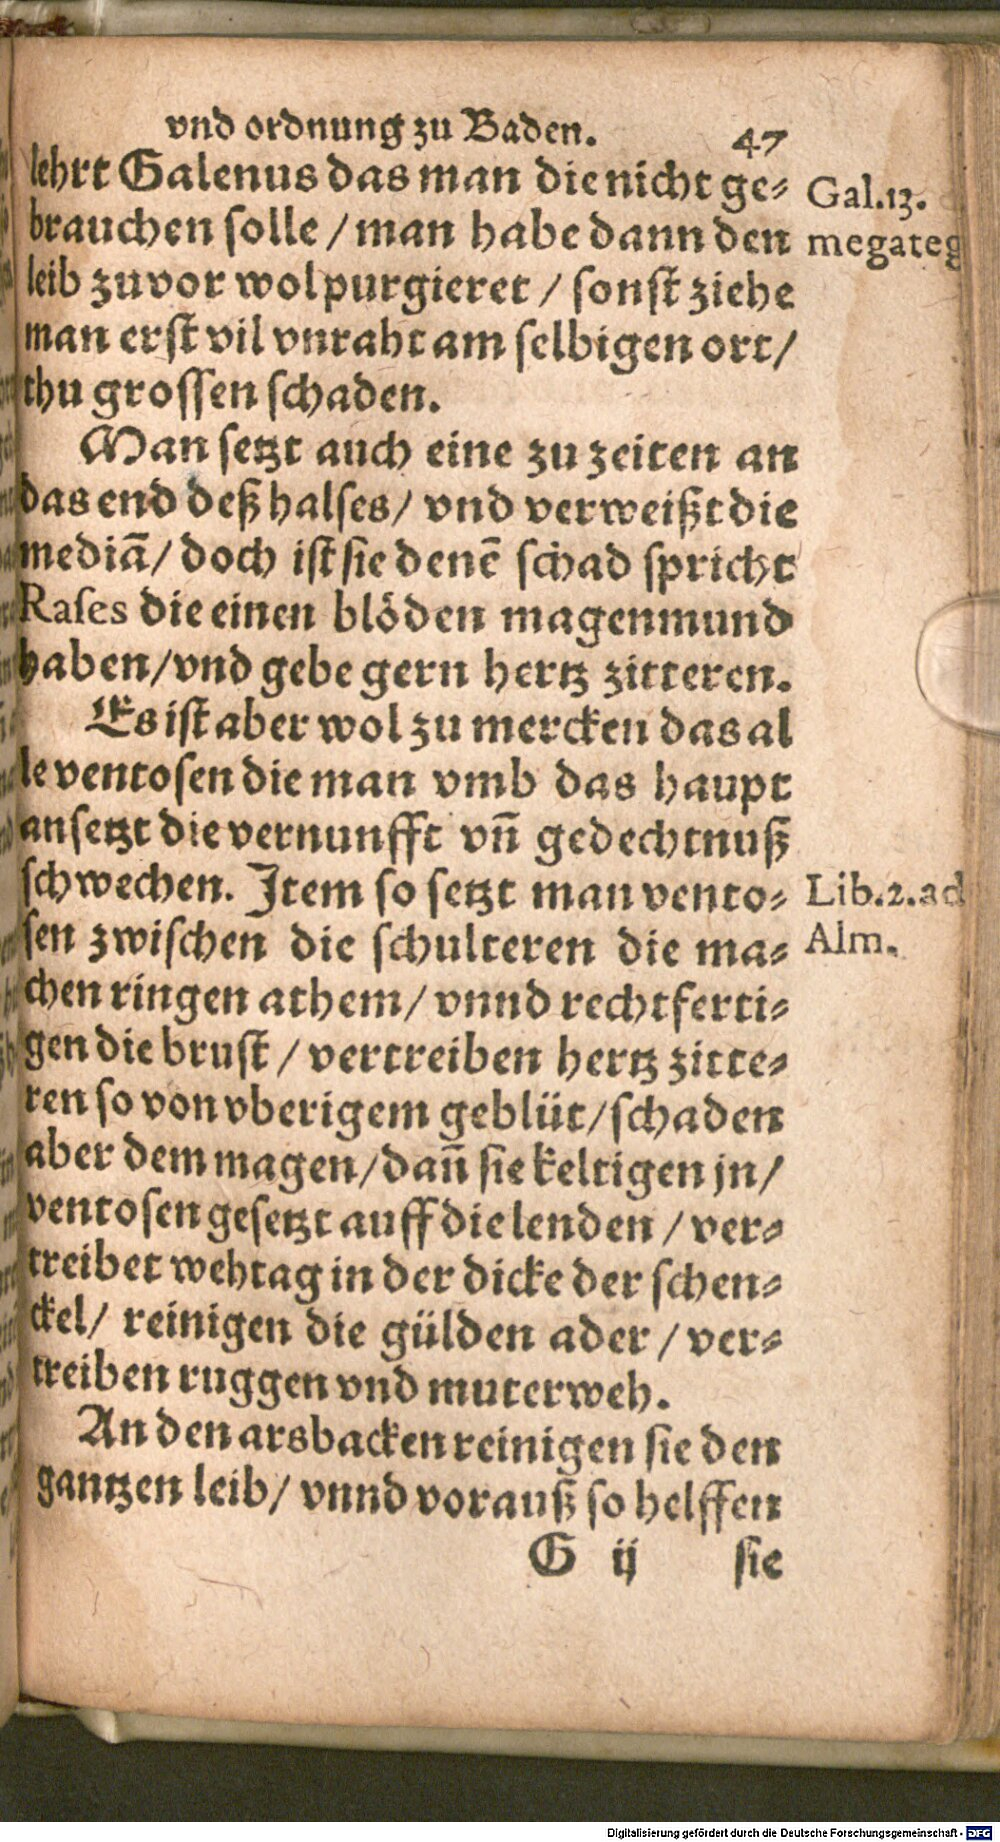 vnd ordnung zu Baden. 47
lehrt Galenus das man die nicht ge-
brauchen solle / man habe dann den
leib zuvor wol purgieret / sonst ziehe
man erst vil vnraht am selbigen ort /
thu grossen schaden.
Gal.13.
megateg
Man setzt auch eine zu zeiten an
das end deß halses / vnd verweißt die
mediā / doch ist sie denē schad spricht
Rases die einen blöden magenmund
haben / vnd gebe gern hertz zitteren.
Es ist aber wol zu mercken das al
le ventosen die man vmb das haupt
ansetzt die vernunfft vn̄ gedechtnuß
schwechen. Item so setzt man vento-
sen zwischen die schulteren die ma-
chen ringen athem / vnnd rechtferti-
gen die brust / vertreiben hertz zitte-
ren so von vberigem geblüt / schaden
aber dem magen / dan̄ sie keltigen jn /
ventosen gesetzt auff die lenden / ver-
treibet wehtag in der dicke der schen-
ckel / reinigen die gülden ader / ver-
treiben ruggen vnd muterweh.
Lib.2.ad
Alm.
An den arsbacken reinigen sie den
gantzen leib / vnnd vorauß so helffen
G ij sie
Digitalisierung gefördert durch die Deutsche Forschungsgemeinschaft - DFG